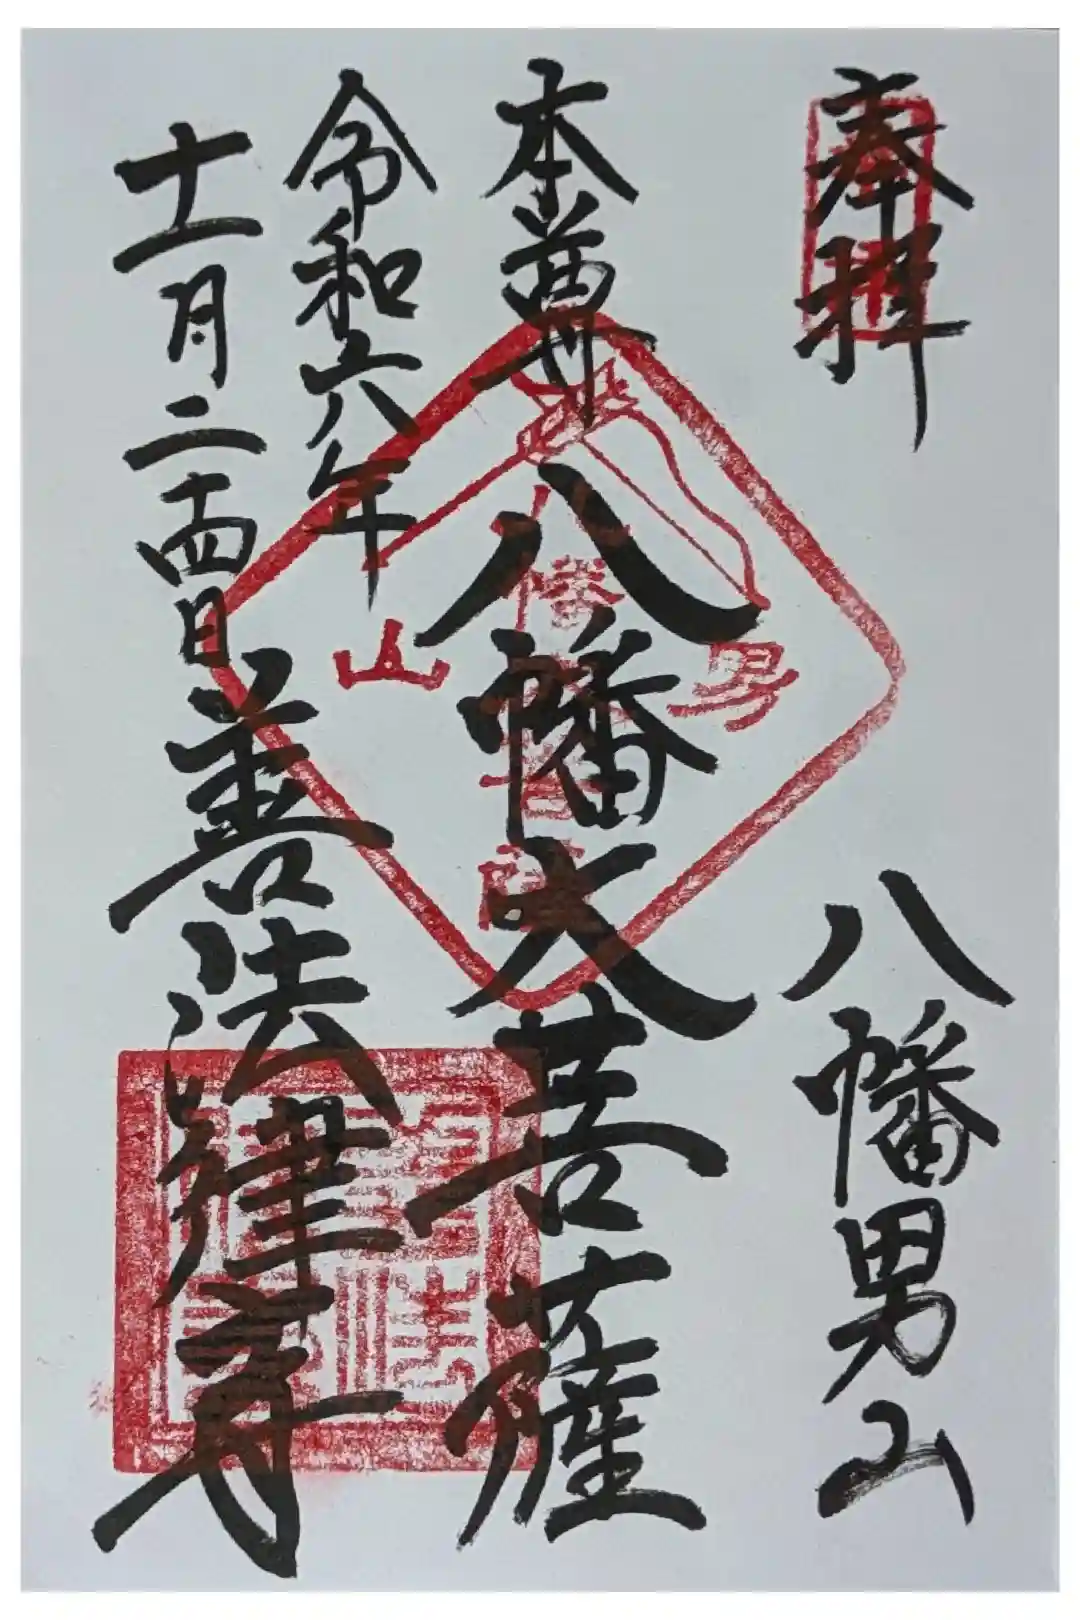 奉拝
八幡男山
本尊
八幡大菩薩
令和六年
十一月二十四日
善法律寺
男
山